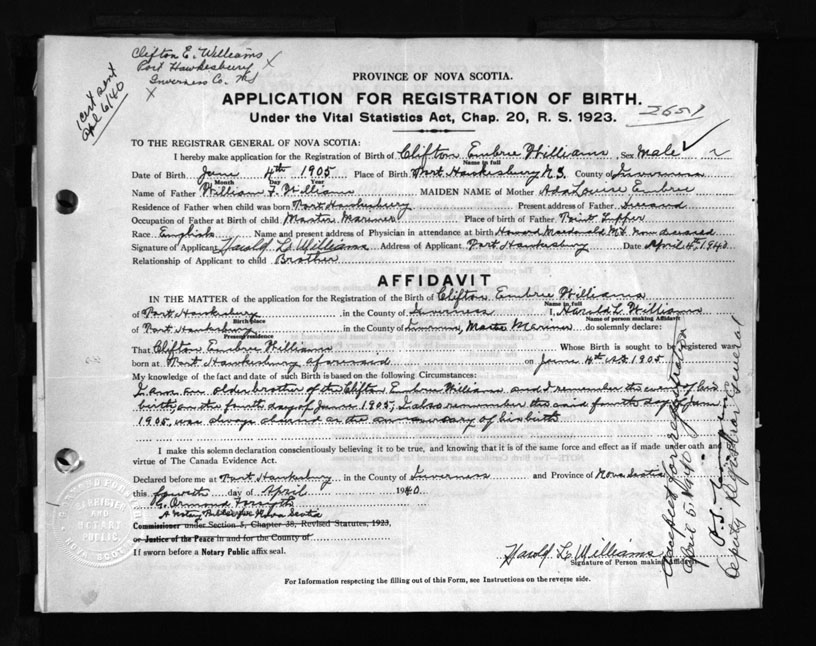 Clifton E. Williams X
Port Hawkesbury
Inverness Co. NS
X
1 cert sent
Apl 6/40
PROVINCE OF NOVA SCOTIA.
APPLICATION FOR REGISTRATION OF BIRTH.
Under the Vital Statistics Act, Chap. 20, R. S. 1923.
2651
TO THE REGISTRAR GENERAL OF NOVA SCOTIA:
I hereby make application for the Registration of Birth of Clifton Embree Williams Sex Male
Name in full
Date of Birth June 4th 1905 Place of Birth Port Hawkesbury N.S. County of Inverness
Month Day Year
Name of Father William F. Williams MAIDEN NAME of Mother Ada Louise Embree
Residence of Father when child was born Port Hawkesbury Present address of Father Deceased
Occupation of Father at Birth of child Master Mariner Place of birth of Father Point Tupper
Race English Name and present address of Physician in attendance at birth Howard Macdonald M.D. now deceased
Signature of Applicant Harold L. Williams Address of Applicant Port Hawkesbury Date April 4th, 1940
Relationship of Applicant to child Brother
AFFIDAVIT
IN THE MATTER of the application for the Registration of the Birth of Clifton Embree Williams
Name in full
of Port Hawkesbury in the County of Inverness I, Harold L. Williams
Birth place Name of person making Affidavit
of Port Hawkesbury in the County of Inverness, Master Mariner do solemnly declare:
Present residence
That Clifton Embree Williams Whose Birth is sought to be registered was
born at Port Hawkesbury aforesaid on June 4th A.D. 1905
My knowledge of the fact and date of such Birth is based on the following Circumstances:
I am an older brother of the Clifton Embree Williams and I remember the event of his
birth on the fourth day of June 1905; I also remember the said fourth day of June
1905, was always observed as the anniversary of his birth
I make this solemn declaration conscientiously believing it to be true, and knowing that it is of the same force and effect as if made under oath and by
virtue of The Canada Evidence Act.
Declared before me at Port Hawkesbury in the County of Inverness and Province of Nova Scotia
this fourth day of April 1940
G. Ormond Forsyth
A Notary Public for Nova Scotia
Commissioner under Section 5, Chapter 38, Revised Statutes, 1923,
or Justice of the Peace in and for the County of
If sworn before a Notary Public affix seal.
Harold L. Williams
Signature of Person making Affidavit
For Information respecting the filling out of this Form, see Instructions on the reverse side.
Accepted for registration
April 5th 1940
Deputy Registrar General
FORSYTH
REGISTER
AND
NOTARY
PUBLIC
NOVA SCOTIA